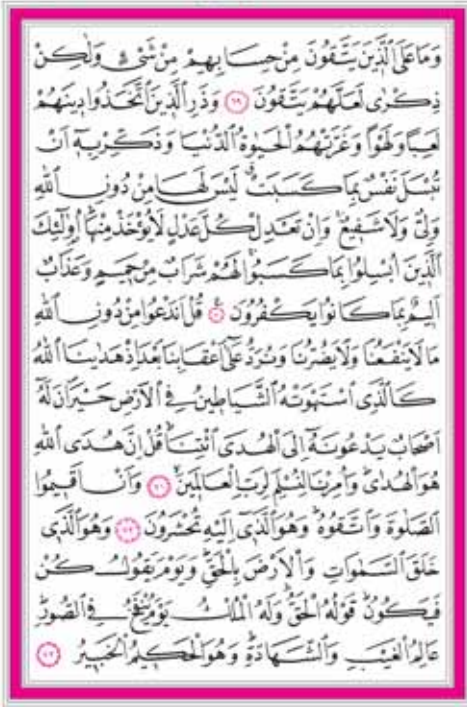 وَمَا عَلَى الَّذِينَ يَتَّقُونَ مِنْ حِسَابِهِمْ مِنْ شَيْءٍ وَلٰكِنْ
ذِكْرٰى لَعَلَّهُمْ يَتَّقُونَ ﴿٦٩﴾ وَذَرِ الَّذِينَ اتَّخَذُوا دِينَهُمْ
لَعِبًا وَلَهْوًا وَغَرَّتْهُمُ الْحَيٰوةُ الدُّنْيَا وَذَكِّرْ بِهٖٓ اَنْ
تُبْسَلَ نَفْسٌ بِمَا كَسَبَتْ لَيْسَ لَهَا مِنْ دُونِ اللّٰهِ
وَلِيٌّ وَلَا شَفِيعٌ وَاِنْ تَعْدِلْ كُلَّ عَدْلٍ لَا يُؤْخَذْ مِنْهَا اُو۬لٰٓئِكَ
الَّذِينَ اُبْسِلُوا بِمَا كَسَبُوا لَهُمْ شَرَابٌ مِنْ حَمِيمٍ وَعَذَابٌ
اَلِيمٌ بِمَا كَانُوا يَكْفُرُونَ ﴿٧٠﴾ قُلْ اَنَدْعُوا مِنْ دُونِ اللّٰهِ
مَا لَا يَنْفَعُنَا وَلَا يَضُرُّنَا وَنُرَدُّ عَلٰٓى اَعْقَابِنَا بَعْدَ اِذْ هَدٰينَا اللّٰهُ
كَالَّذِى اسْتَهْوَتْهُ الشَّيَاطِينُ فِى الْاَرْضِ حَيْرَانَ لَهُٓ
اَصْحَابٌ يَدْعُونَهُٓ اِلَى الْهُدَى ائْتِنَا قُلْ اِنَّ هُدَى اللّٰهِ
هُوَ الْهُدٰى وَاُمِرْنَا لِنُسْلِمَ لِرَبِّ الْعَالَمِينَ ﴿٧١﴾ وَاَنْ اَقِيمُوا
الصَّلٰوةَ وَاتَّقُوهُ وَهُوَ الَّذِٓى اِلَيْهِ تُحْشَرُونَ ﴿٧٢﴾ وَهُوَ الَّذِى
خَلَقَ السَّمٰوَاتِ وَالْاَرْضَ بِالْحَقِّ وَيَوْمَ يَقُولُ كُنْ
فَيَكُونُ قَوْلُهُ الْحَقُّ وَلَهُ الْمُلْكُ يَوْمَ يُنْفَخُ فِى الصُّورِ
عَالِمُ الْغَيْبِ وَالشَّهَادَةِ وَهُوَ الْحَكِيمُ الْخَبِيرُ ﴿٧٣﴾